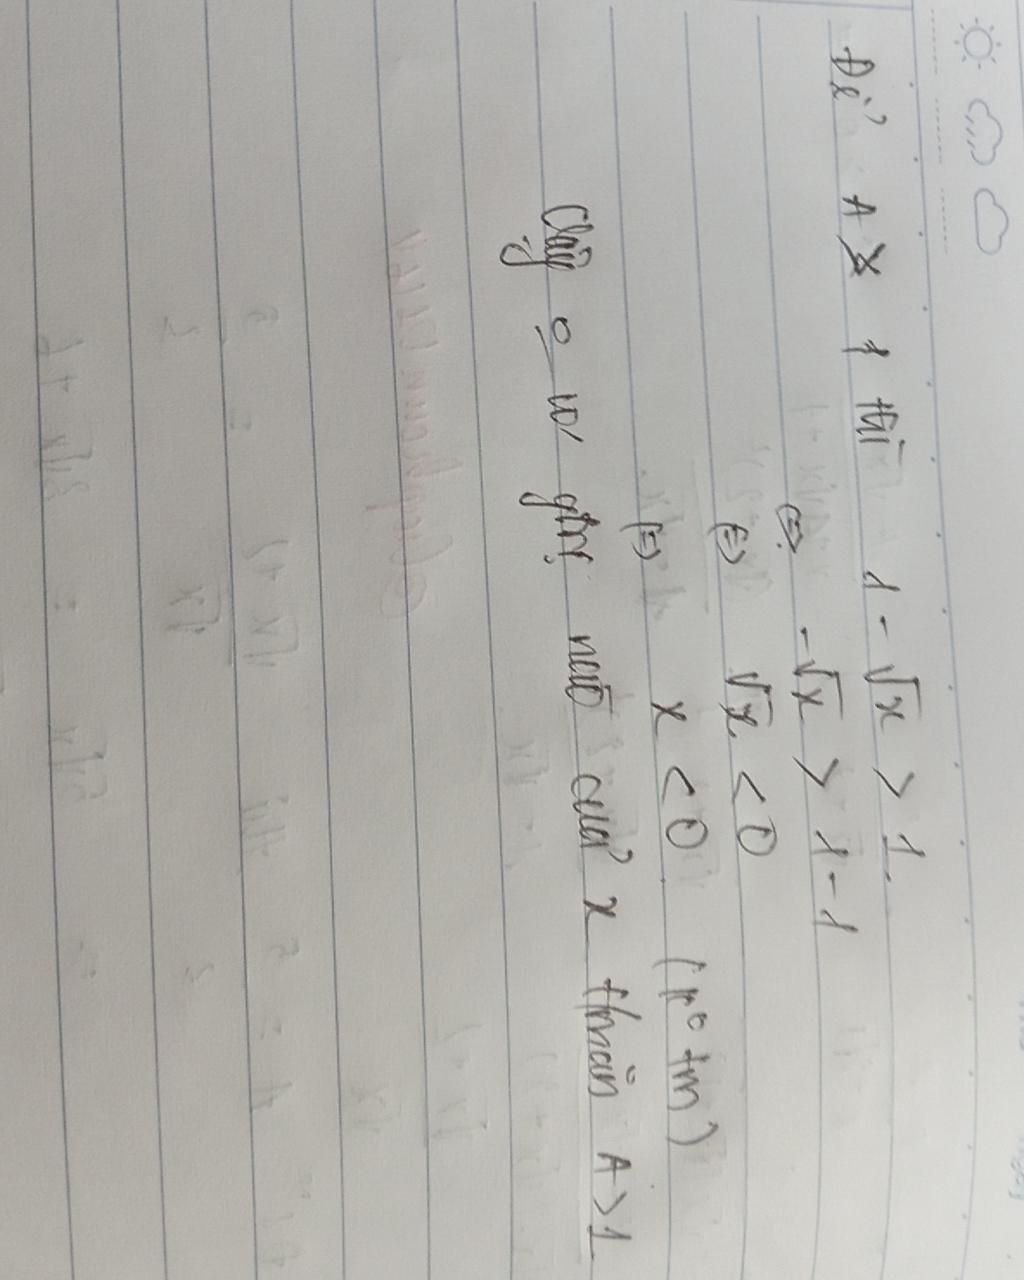 Để A > 1 thì 1 - √x > 1.
(=) -√x > 1 - 1
(=) √x < 0
(=) x < 0 (k° tm)
Vậy o có gtrị nào của x t/mãn A > 1